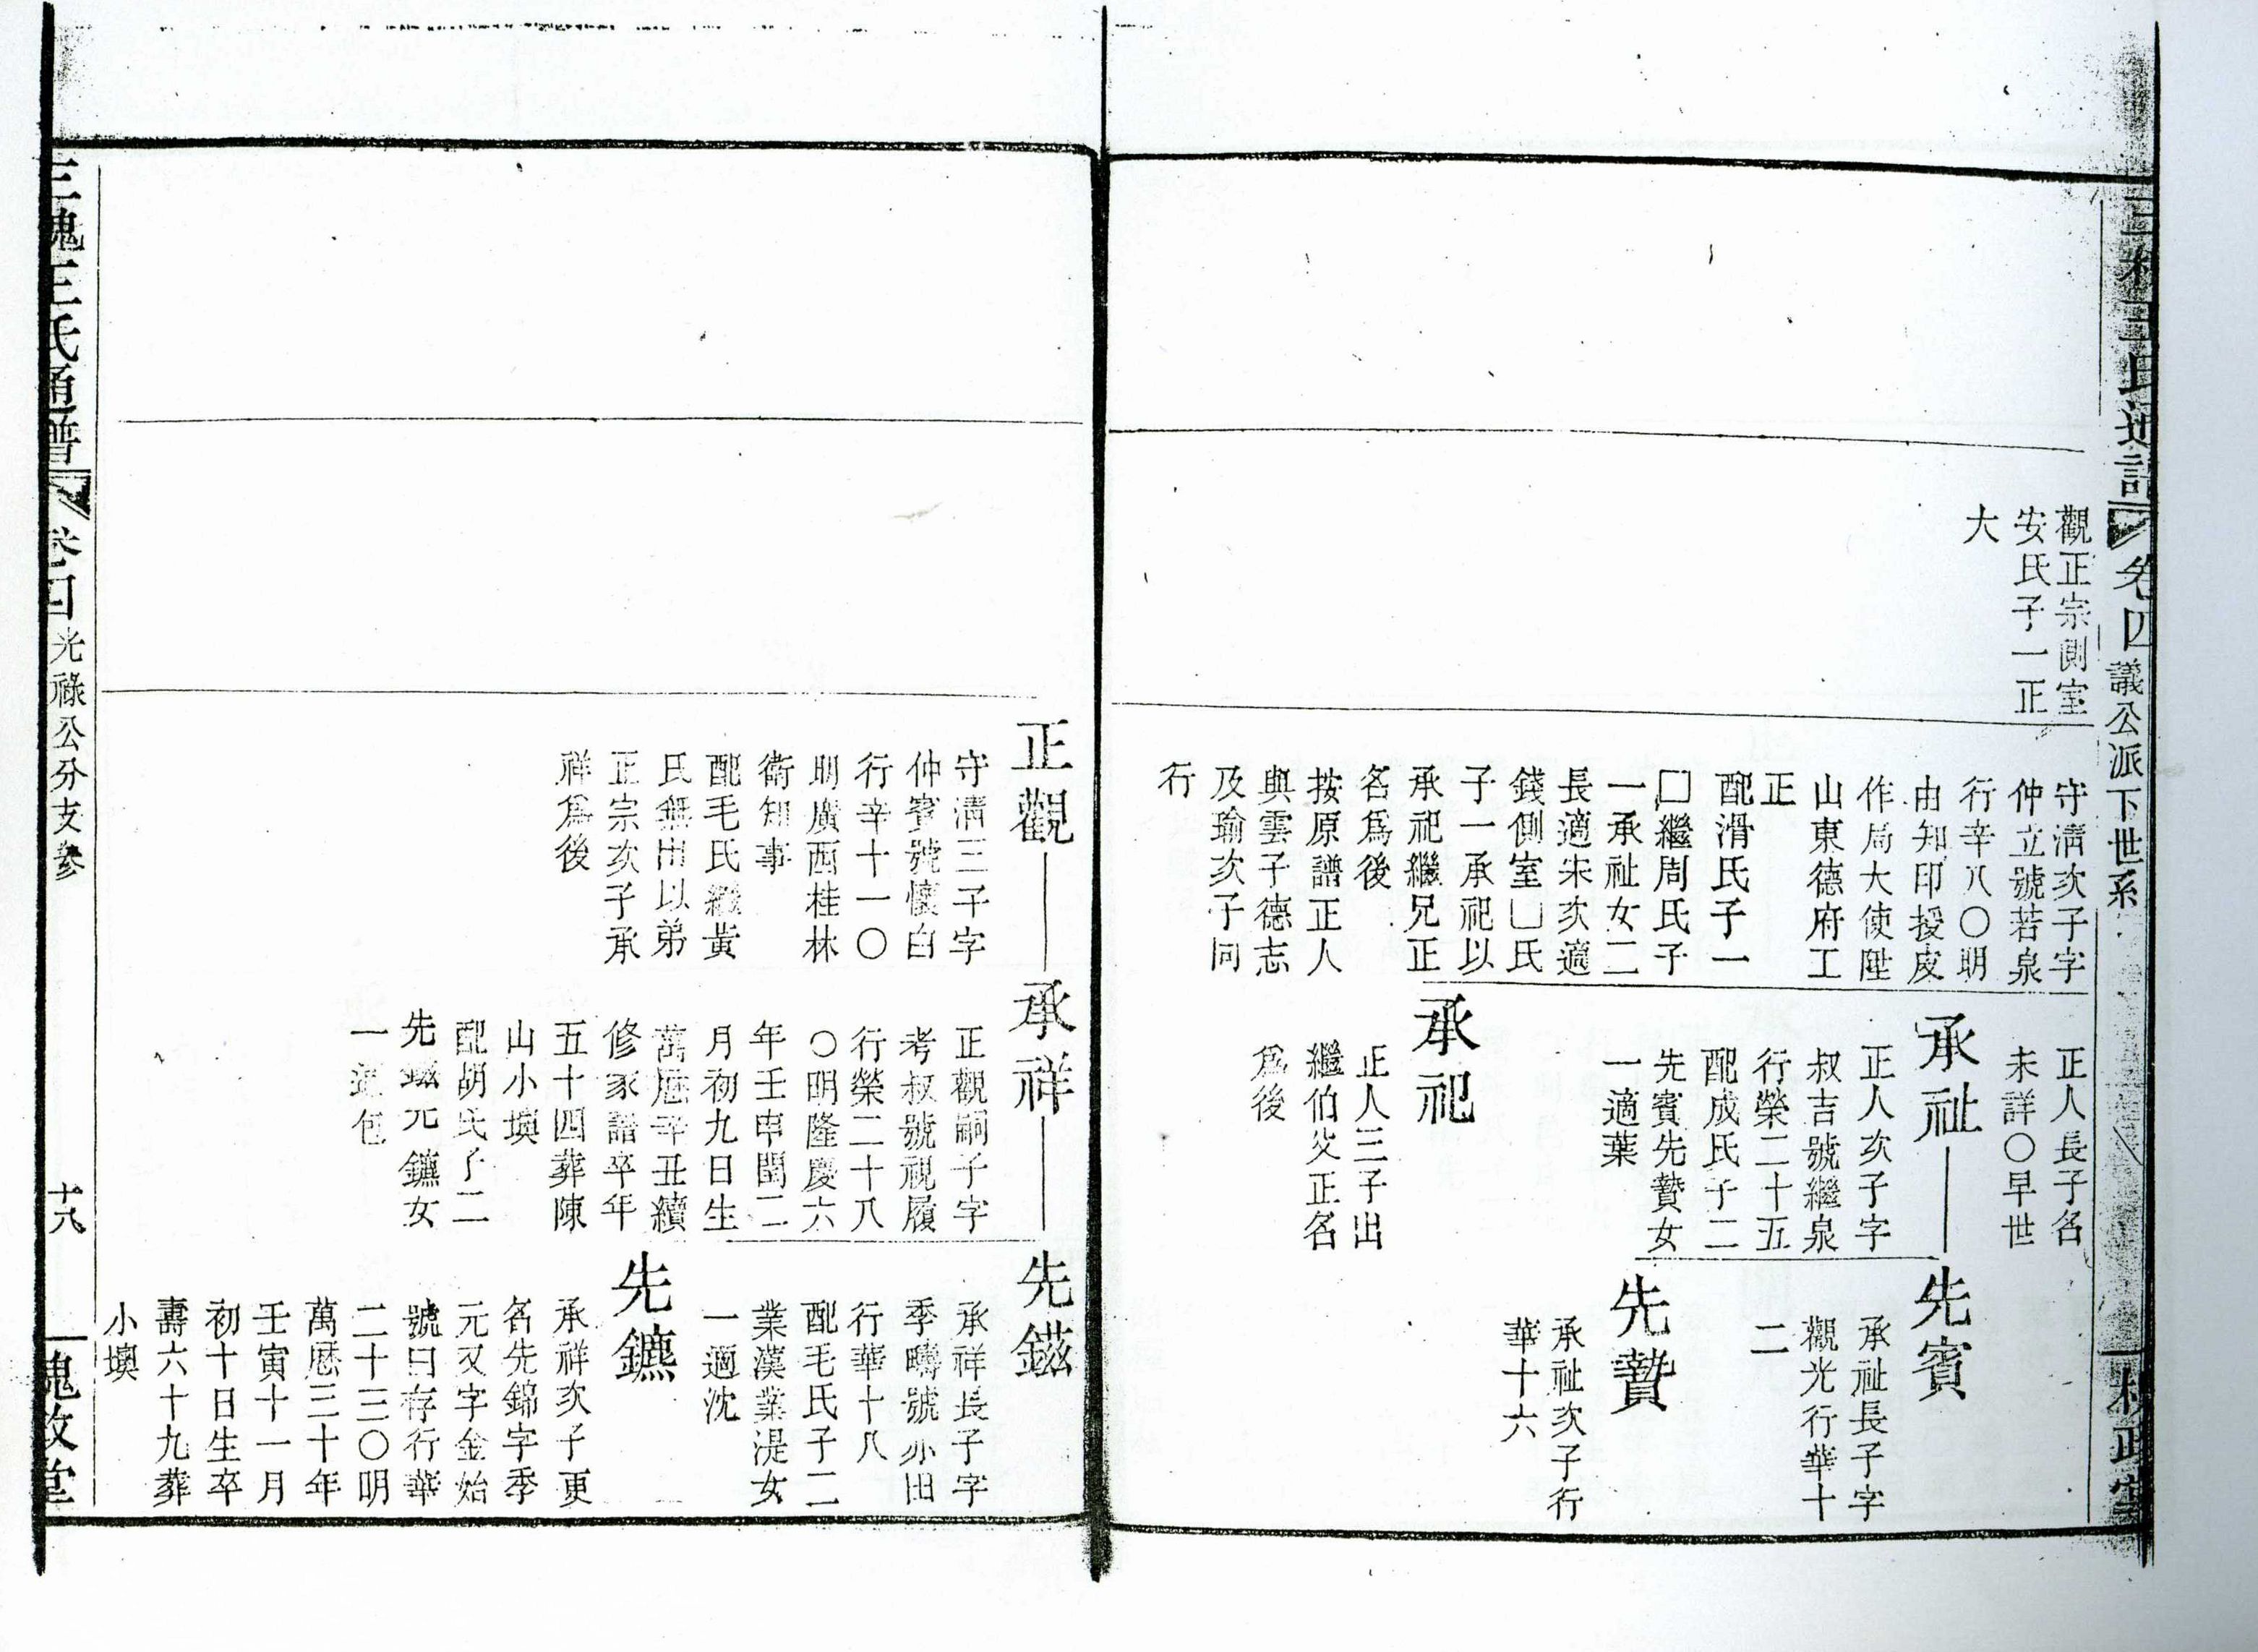 三槐王氏通譜 卷四 議公派下世系 三槐政堂
觀正宗側室
安氏子一正
大
守淸次子字
仲立號若泉
行辛八〇明
由知印授皮
作局大使陞
山東德府工
正
配滑氏子一
□繼周氏子
一承祉女二
長適朱次適
錢側室□氏
子一承祀以
承祀繼兄正
名爲後
按原譜正人
與雲子德志
及瑜次子同
行
正人長子名
未詳〇早世
承祉
正人次子字
叔吉號繼泉
行榮二十五
配成氏子二
先賓先贊女
一適葉
承祀
正人三子出
繼伯父正名
爲後
先賓
承祉長子字
觀光行華十
二
先贊
承祉次子行
華十六
正觀
守淸三子字
仲賓號懷白
行辛十一〇
明廣西桂林
衛知事
配毛氏繼黃
氏無出以弟
正宗次子承
祥爲後
承祥
正觀嗣子字
考叔號視履
行榮二十八
〇明隆慶六
年壬申閏二
月初九日生
萬曆辛丑續
修家譜卒年
五十四葬陳
山小墺
配胡氏子二
先鎡先鑣女
一適包
先鎡
承祥長子字
季疇號亦田
行華十八
配毛氏子二
業漢業湜女
一適沈
先鑣
承祥次子更
名先錦字季
元又字金始
號曰存行華
二十三〇明
萬曆三十年
壬寅十一月
初十日生卒
壽六十九葬
小墺
三槐王氏通譜 卷四 光祿公分支參 十八 三槐政堂